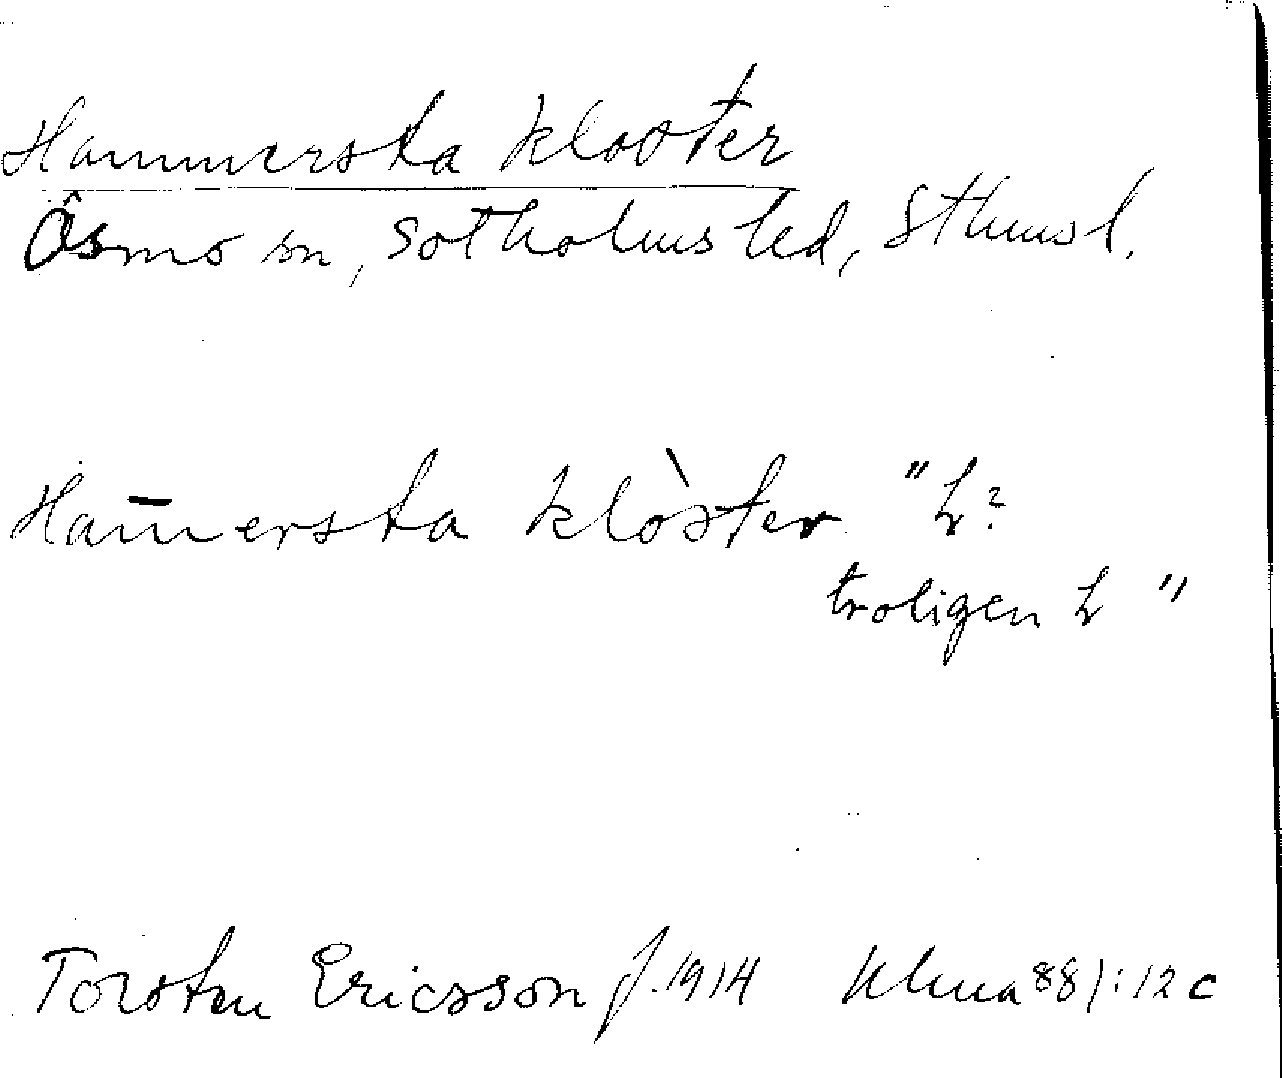 Hammersta kloster
Ösmo sn, Sotholms hd, Sthmsl.
Ham̄ersta klòster "h?
troligen h"
Torsten Ericsson f. 1914 Ulma 881:12c